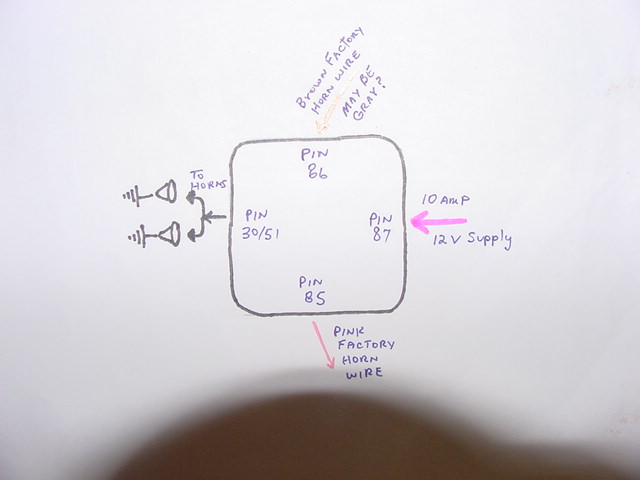 BROWN FACTORY
HORN WIRE
MAY BE
GRAY?
PIN
86
TO
HORNS
PIN
30/51
PIN
87
10 AMP
12V Supply
PIN
85
PINK
FACTORY
HORN
WIRE